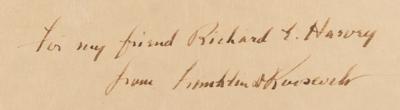 For my friend Richard E. Harvey
from Franklin D Roosevelt